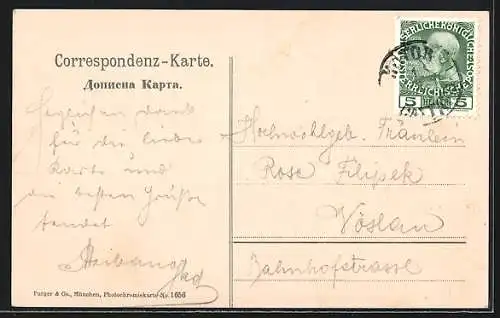 Correspondenz-Karte.
Дописна Карта.
Herzlichen Dank
für die liebe
Karte und
die besten Grüße
sendet
Hochwohlgeb. Fräulein
Rosa Filipek
Vöslau
Bahnhofstrasse
Purger & Co., München, Photochromiekarte Nr. 1656
5 HELLER 5